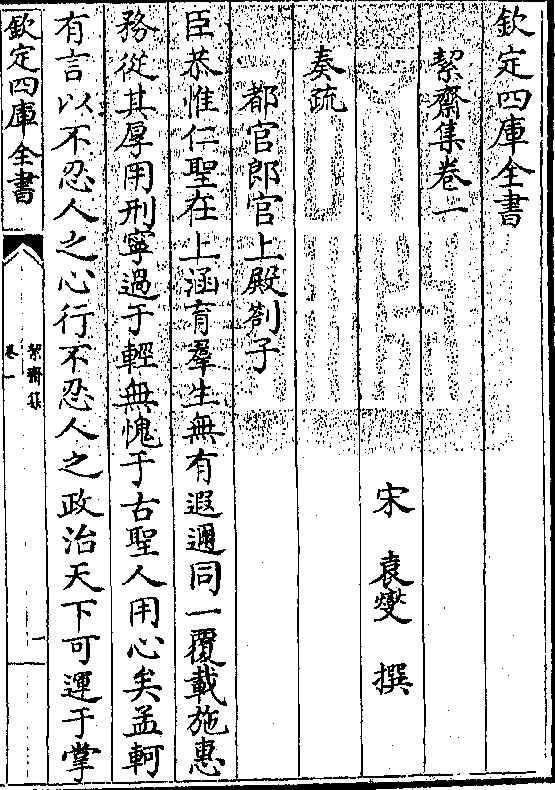 欽定四庫全書
絜齋集卷一
宋　袁燮　撰
奏疏
都官郎官上殿劄子
臣恭惟仁聖在上涵育羣生無有遐邇同一覆載施惠
務從其厚用刑寧過于輕無愧于古聖人用心矣孟軻
有言以不忍人之心行不忍人之政治天下可運于掌
欽定四庫全書
絜齋集
卷一
一